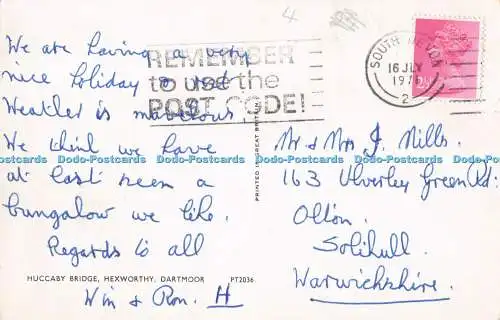 4
We are having a very
nice holiday &
Weather is marvelous
We think we have
at last seen a
bungalow we like.
Regards to all
Win & Ron. H
REMEMBER
to use the
POST CODE!
SOUTH DEVON
16 JLY
197
2
2½P
PRINTED IN GREAT BRITAIN
Mr & Mrs J. Mills.
163 Ulverley Green Rd.
Olton.
Solihull.
Warwickshire.
HUCCABY BRIDGE, HEXWORTHY, DARTMOOR PT2036
Dodo-Postcards Dodo-Postcards Dodo-Postcards Dodo-Postcards Dodo-Postcards Dodo-Postcards